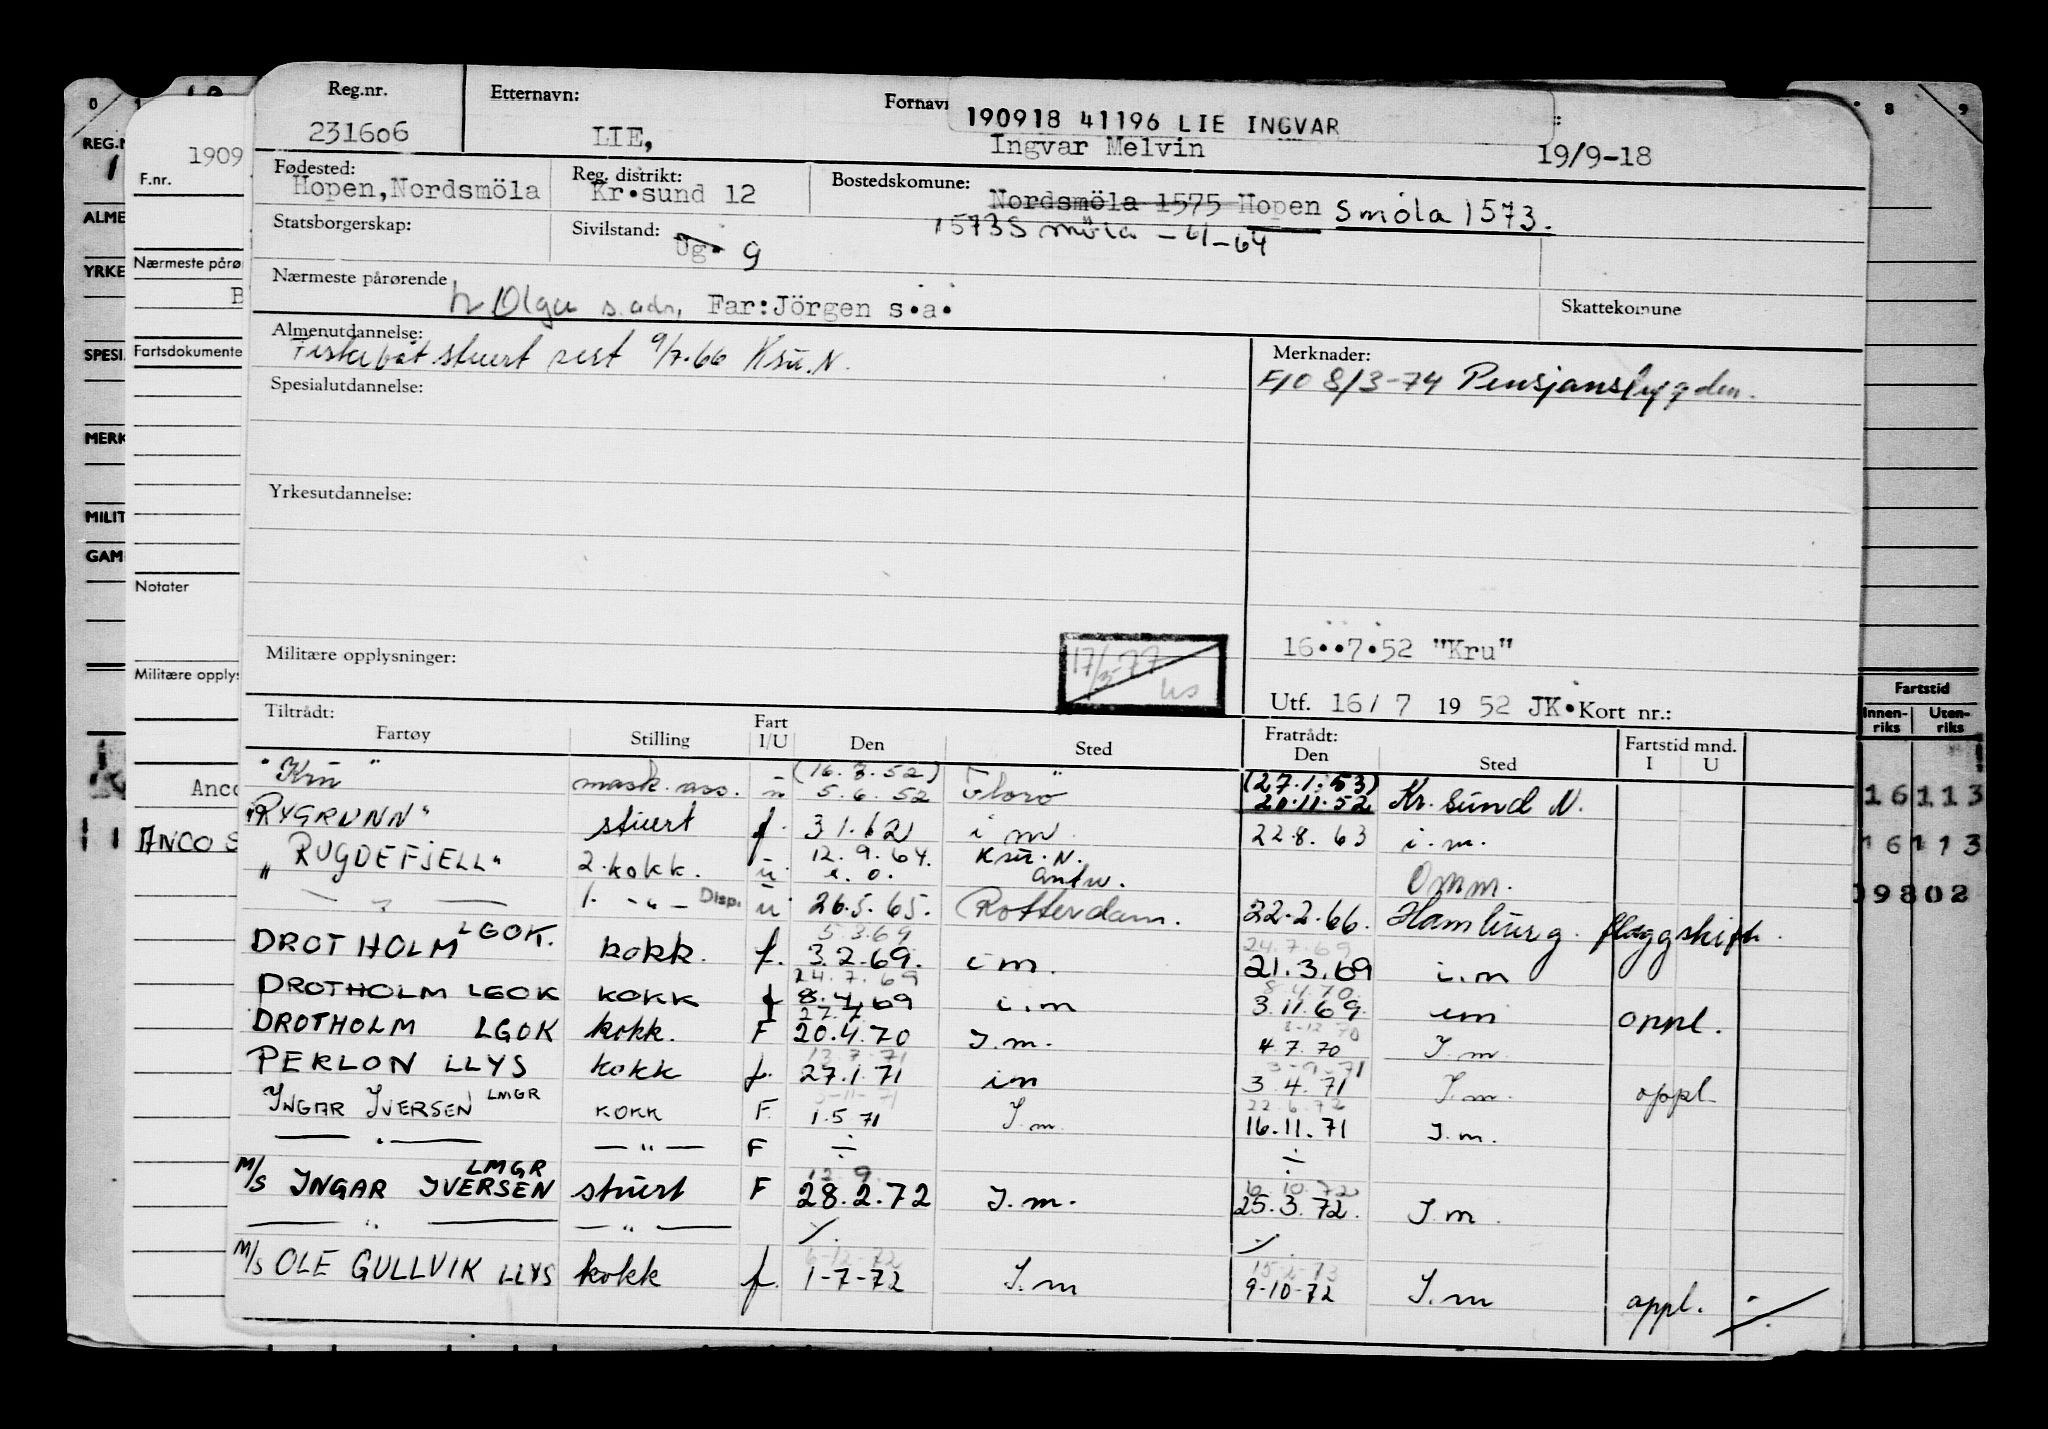 Reg.nr. Etternavn: Fornavn 190918 41196 LIE INGVAR
231606 LIE, Ingvar Melvin 19/9-18
Fødested: Reg. distrikt: Bostedskomune:
Hopen,Nordsmöla Kr.sund 12 Nordsmöla 1575 Hopen Smöla 1573.
Statsborgerskap: Sivilstand: 1573 Smöla - 61-64
Ug. g
Nærmeste pårørende
Olga s. adr, Far:Jörgen s.a. Skattekomune
Almenutdannelse: Merknader:
Fiskebåt stuert sert 9/7.66 Ksu.N. F/O 8/3-74 Pensjonstrygden.
Spesialutdannelse:
Yrkesutdannelse:
16..7.52 "Kru"
Militære opplysninger: 17/3-77
Utf. 16/ 7 19 52 JK. Kort nr.:
Tiltrådt: Fart Fratrådt: Fartstid mnd.
Fartøy Stilling I/U Den Sted Den Sted I U
(16.7.52) (27.1.53)
"Kru" mask.ass. u 5.6.52 Florö 20.11.52 Kr.sund N.
"RYGRUNN" stuert f. 31.62 i m. 22.8.63 i.m.
"RUGDEFJELL" 2.kokk. ü 12.9.64. Ksu.N.
Antw. Omm.
— " — 1. - " - Disp. ü 26.5.65. Rotterdam. 22.2.66. Hamburg. flaggskift.
5.3.69 24.7.69
DROTHOLM LGOK. kokk. f. 3.2.69. i m. 21.3.69 i.m
24.7.69 8.4.70
DROTHOLM LGOK KOKK f 8.4.69 i.m 3.11.69. im oppl.
8-12 70
DROTHOLM LGOK kokk. F 20.4.70 I.m. 4.7.70 I.m
13.7.71 3-9.71
PERLON LLYS kokk f. 27.1.71 im 3.4.71 I.m. oppl.
22.6.72
INGAR IVERSEN LMGR KOKK F. 1.5 71 I.m. 16.11.71 I.m.
— " — — " — F ÷ ÷
12 9. 6.10.72
M/S INGAR IVERSEN LMGR stuert F 28.2.72 I.m. 25.3.72. I.m.
— " — — " — ٪ ٪
6-12-72 15-2-73
M/S OLE GULLVIK LLYS kokk f. 1-7-72 I.m 9-10-72 I.m oppl.
REG.N
1909
F.nr.
ALME
Nærmeste pårør
YRKE
SPESI
Fartsdokumente
MERK
MILIT
GAM
Notater
Militære opply
Anco
ANCO S
8 9
Fartstid
Innen-riks Uten-riks
16 113
16 113
09802